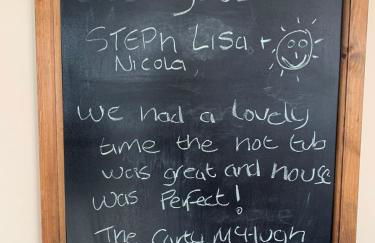 STEPH LISA +
Nicola
We had a lovely
time the hot tub
was great and house
was Perfect!
The Carty